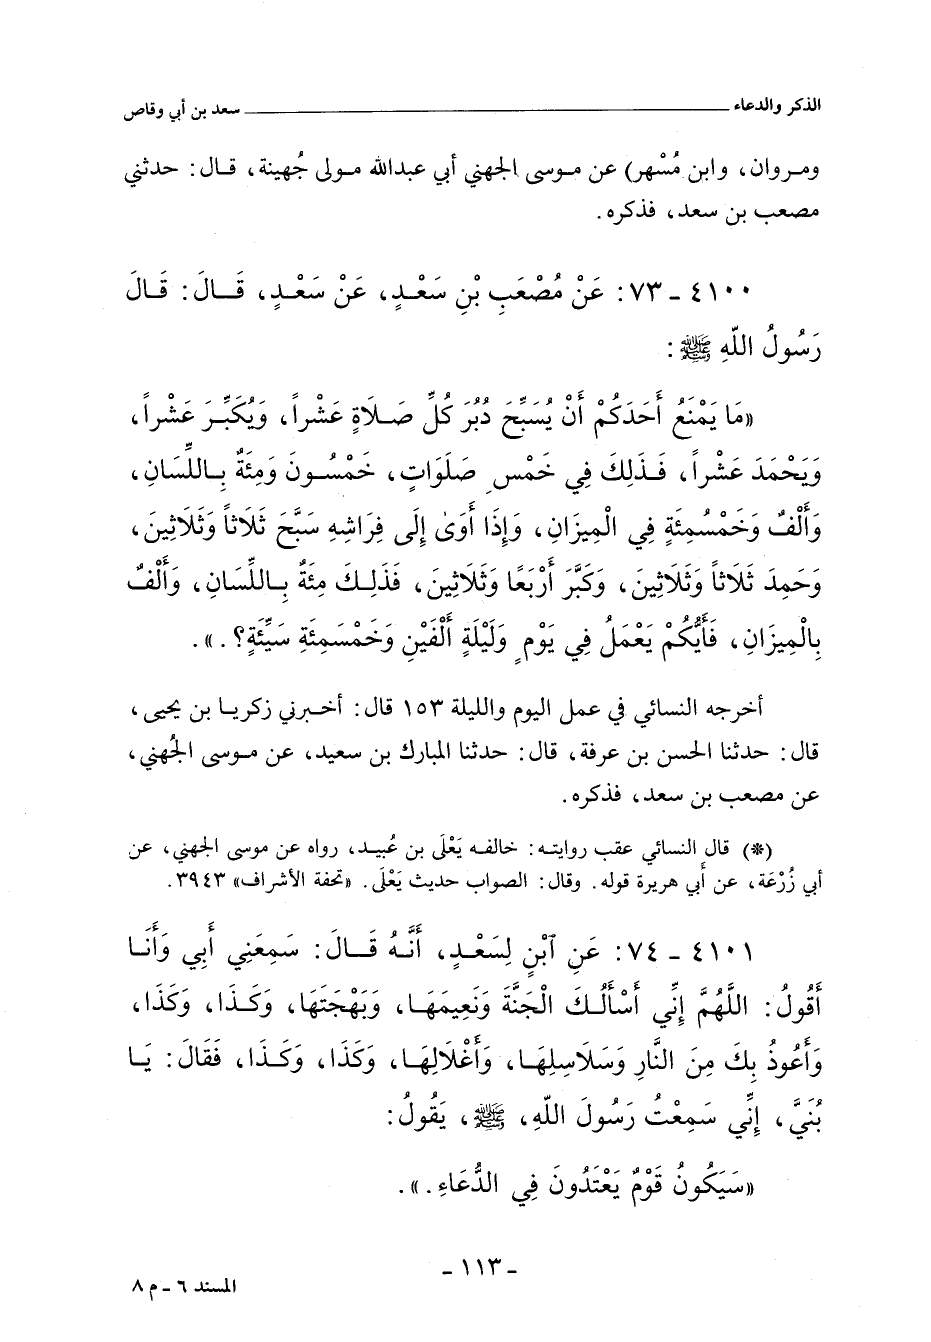 الذكر والدعاء ــــــــــ سعد بن أبي وقاص
ومروان، وابن مُسْهر) عن موسى الجهني أبي عبدالله مولى جُهينة، قال: حدثني
مصعب بن سعد، فذكره.
٤١٠٠ - ٧٣: عَنْ مُصْعَبِ بْنِ سَعْدٍ، عَنْ سَعْدٍ، قَالَ: قَالَ
رَسُولُ اللّهِ ﷺ:
«مَا يَمْنَعُ أَحَدَكُمْ أَنْ يُسَبِّحَ دُبُرَ كُلِّ صَلَاةٍ عَشْراً، وَيُكَبِّرَ عَشْراً،
وَيَحْمَدَ عَشْراً، فَذَلِكَ فِي خَمْسِ صَلَوَاتٍ، خَمْسُونَ وَمِئَةٌ بِاللِّسَانِ،
وَأَلْفٌ وَخَمْسُمِئَةٍ فِي الْمِيزَانِ، وَإِذَا أَوَىٰ إِلَى فِرَاشِهِ سَبَّحَ ثَلَاثاً وَثَلَاثِينَ،
وَحَمِدَ ثَلَاثاً وَثَلَاثِينَ، وَكَبَّرَ أَرْبَعًا وَثَلَاثِينَ، فَذَلِكَ مِئَةٌ بِاللِّسَانِ، وَأَلْفٌ
بِالْمِيزَانِ، فَأَيُّكُمْ يَعْمَلُ فِي يَوْمٍ وَلَيْلَةٍ أَلْفَيْنِ وَخَمْسَمِئَةِ سَيِّئَةٍ؟.».
أخرجه النسائي في عمل اليوم والليلة ١٥٣ قال: أخبرني زكريا بن يحيى،
قال: حدثنا الحسن بن عرفة، قال: حدثنا المبارك بن سعيد، عن موسى الجُهني،
عن مصعب بن سعد، فذكره.
(*) قال النسائي عقب روايته: خالفه يَعْلَى بن عُبيد، رواه عن موسى الجهني، عن
أبي زُرْعَة، عن أبي هريرة قوله. وقال: الصواب حديث يَعْلَى. «تحفة الأشراف» ٣٩٤٣.
٤١٠١ - ٧٤: عَنِ ٱبْنٍ لِسَعْدٍ، أَنَّهُ قَالَ: سَمِعَنِي أَبِي وَأَنَا
أَقُولُ: اللَّهُمَّ إِنِّي أَسْأَلُكَ الْجَنَّةَ وَنَعِيمَهَا، وَبَهْجَتَهَا، وَكَذَا، وَكَذَا،
وَأَعُوذُ بِكَ مِنَ النَّارِ وَسَلَاسِلِهَا، وَأَغْلَالِهَا، وَكَذَا، وَكَذَا، فَقَالَ: يَا
بُنَيَّ، إِنِّي سَمِعْتُ رَسُولَ اللّهِ، ﷺ، يَقُولُ:
«سَيَكُونُ قَوْمٌ يَعْتَدُونَ فِي الدُّعَاءِ.».
- ١١٣ -
المسند ٦ - م ٨